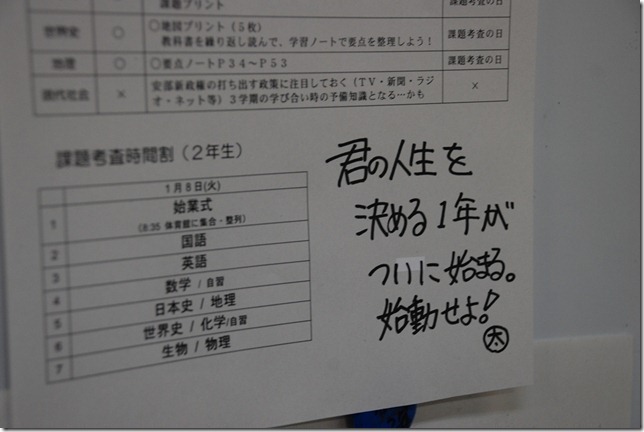 課題プリント
課題考査の日
世界史 ○ ○地図プリント(5枚) 課題考査の日
教科書を繰り返し読んで、学習ノートで要点を整理しよう!
地理 ○ ○要点ノートP34~P53 課題考査の日
現代社会 × 安部新政権の打ち出す政策に注目しておく(TV・新聞・ラジ ×
オ・ネット等)3学期の学び合い時の予備知識となる…かも
課題考査時間割(2年生)
1月8日(火)
1 始業式
(8:35 体育館に集合・整列)
2 国語
3 英語
4 数学 / 自習
5 日本史 / 地理
6 世界史 / 化学/自習
7 生物 / 物理
君の人生を
決める1年が
ついに始まる。
始動せよ!
太